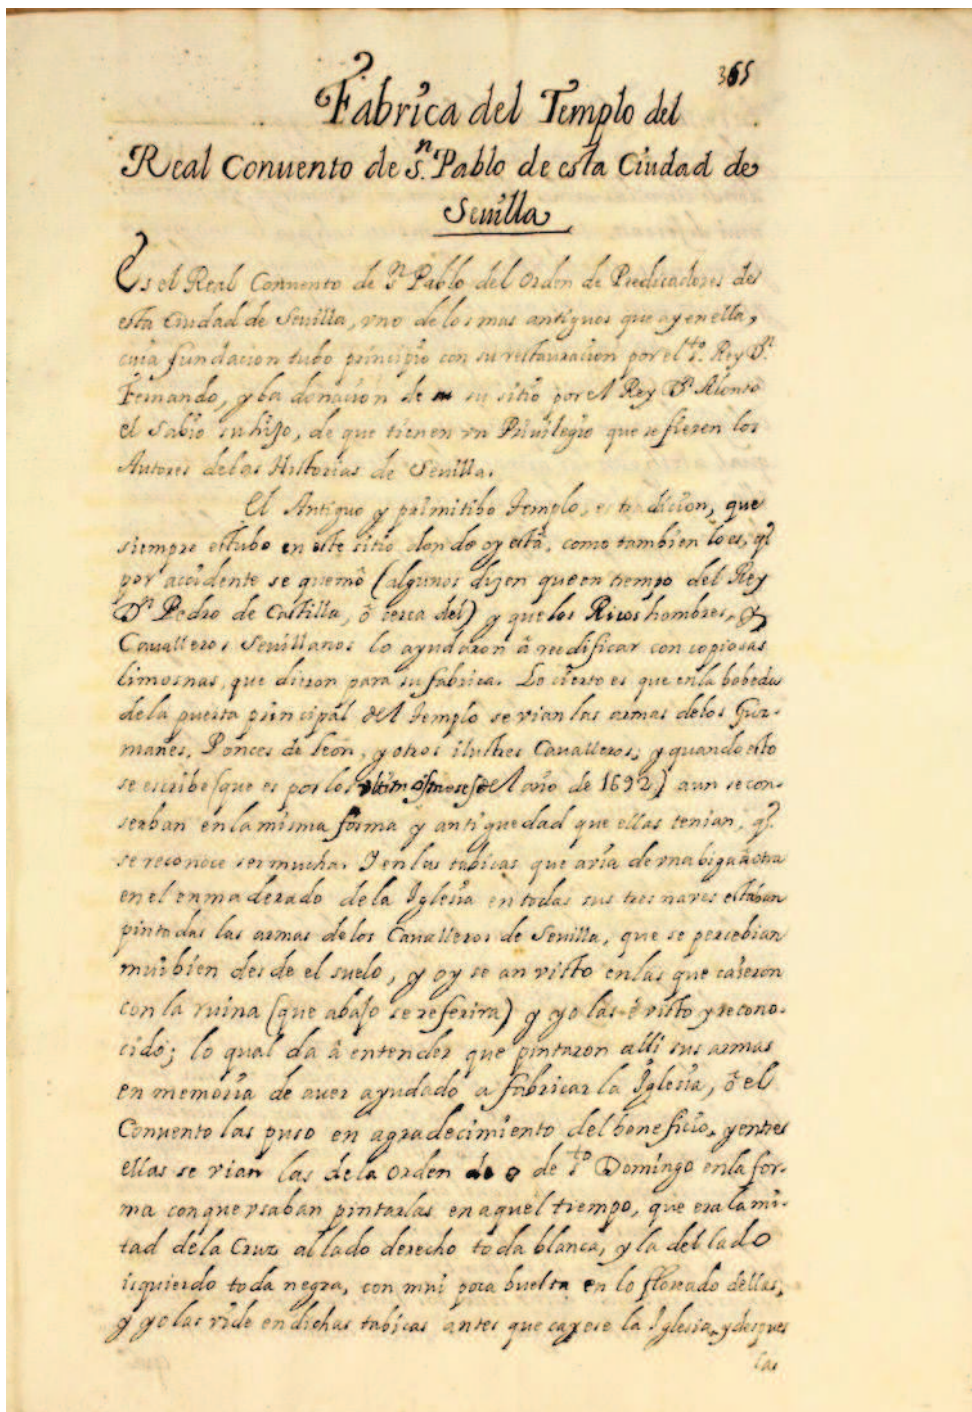 365
Fabrica del Templo del
Real Conuento de Sn. Pablo de esta Ciudad de
Seuilla
Es el Real Conuento de Sn Pablo del Orden de Predicadores de
esta Ciudad de Seuilla, vno de los mas antiguos que ay en ella,
cuia fundacion tubo principio con su restauracion por el Sto. Rey Dn.
Fernando, y la donacion de su sitio por el Rey Dn Alonso
el Sabio su hijo, de que tienen vn Priuilegio que refieren los
Autores de las Historias de Seuilla.
El Antiguo y primitibo Templo, es tradicion, que
siempre estubo en este sitio donde oy está, como tambien lo es, q.
por accidente se quemô (algunos dizen que en tiempo del Rey
Dn Pedro de Castilla, ô cerca del) y que los Ricos hombres, y
Caualleros Seuillanos lo ayudaron â reedificar con copiosas
limosnas, que dieron para su fabrica. Lo cierto es que en la bobeda
de la puerta principal del Templo se vian las armas de los Guz-
manes, Ponces de león, y otros ilustres Caualleros; y quando esto
se escribe (que es por los vltimos meses del año de 1692) aun se con-
serban en la misma forma y antiguedad que ellas tenian, q.
se reconoce ser mucha. Y en las tabicas que auía de vna biga â otra
en el enmaderado de la Iglesia en todas sus tres naves estaban
pintadas las armas de los Caualleros de Seuilla, que se percebian
mui bien desde el suelo, y oy se an visto en las que caieron
con la ruina (que abajo se referira) y yo las é visto y recono-
cido; lo qual da â entender que pintaron alli sus armas
en memoria de auer ayudado a fabricar la Iglesia, ô el
Conuento las puso en agradecimiento del beneficio, y entre
ellas se vian las de la Orden de Sto Domingo en la for-
ma con que vsaban pintarlas en aquel tiempo, que era la mi-
tad de la Cruz al lado derecho toda blanca, y la del lado
izquierdo toda negra, con mui poca buelta en lo floreado dellas,
y yo las vide en dichas tabicas antes que cayese la Iglesia, y despues
las